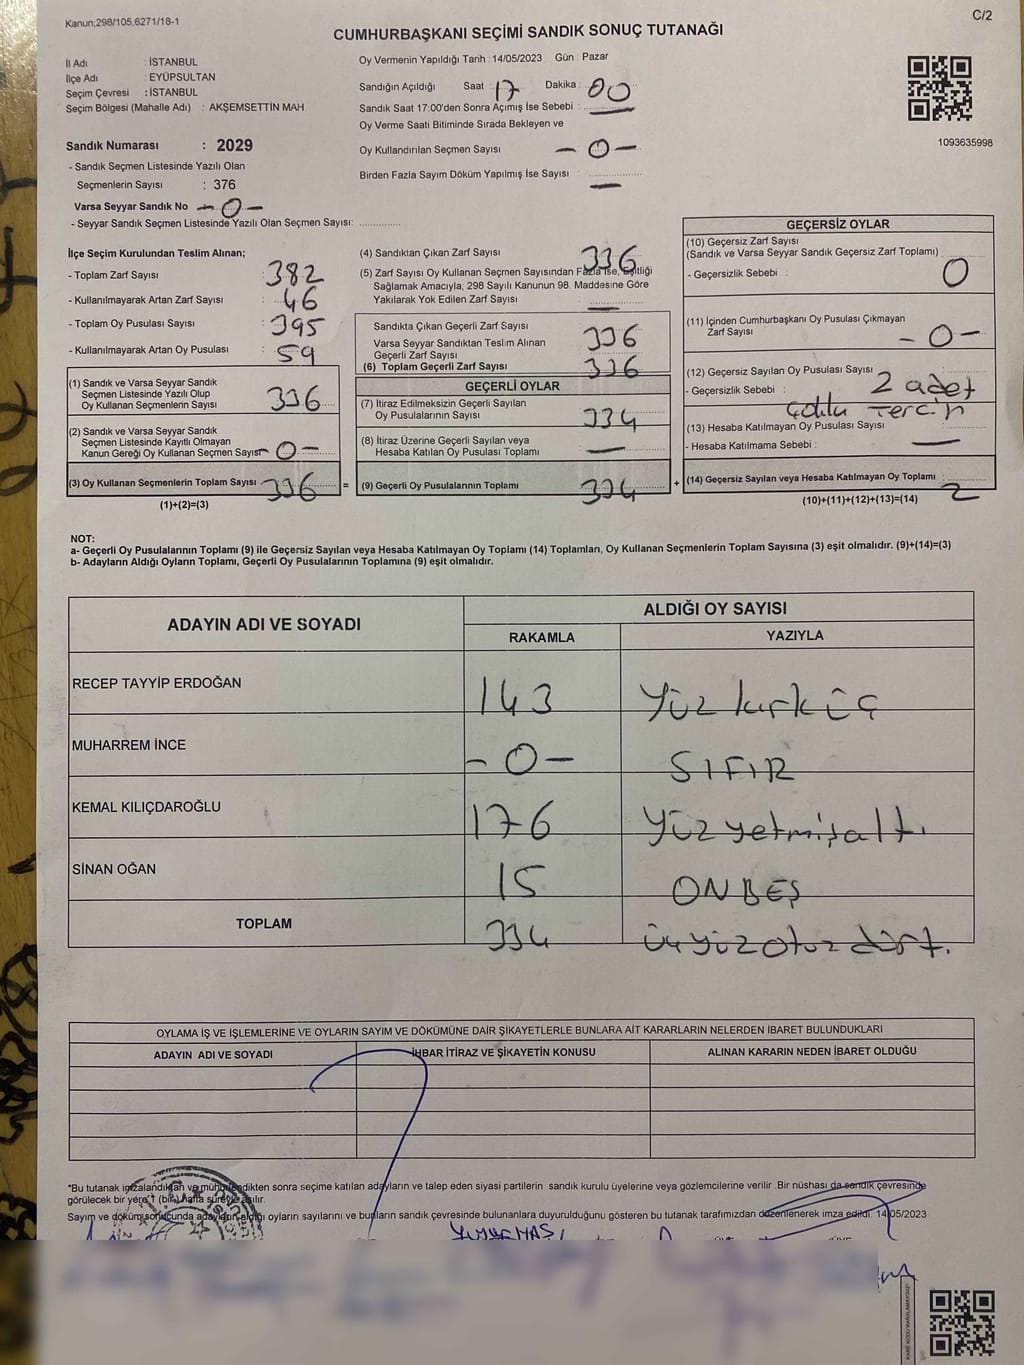 Kanun,298/105,6271/18-1
C/2
CUMHURBAŞKANI SEÇİMİ SANDIK SONUÇ TUTANAĞI
İl Adı : İSTANBUL
İlçe Adı : EYÜPSULTAN
Seçim Çevresi : İSTANBUL
Seçim Bölgesi (Mahalle Adı) : AKŞEMSETTİN MAH
Oy Vermenin Yapıldığı Tarih : 14/05/2023 Gün : Pazar
Sandığın Açıldığı Saat : 17 Dakika : 00
Sandık Saat 17:00'den Sonra Açımış İse Sebebi :
Oy Verme Saati Bitiminde Sırada Bekleyen ve
Oy Kullandırılan Seçmen Sayısı - 0 -
Birden Fazla Sayım Döküm Yapılmış İse Sayısı : —
1093635998
Sandık Numarası : 2029
- Sandık Seçmen Listesinde Yazılı Olan
Seçmenlerin Sayısı : 376
Varsa Seyyar Sandık No - 0 -
- Seyyar Sandık Seçmen Listesinde Yazılı Olan Seçmen Sayısı:
İlçe Seçim Kurulundan Teslim Alınan;
- Toplam Zarf Sayısı : 382
- Kullanılmayarak Artan Zarf Sayısı : 46
- Toplam Oy Pusulası Sayısı : 395
- Kullanılmayarak Artan Oy Pusulası : 59
(1) Sandık ve Varsa Seyyar Sandık
Seçmen Listesinde Yazılı Olup
Oy Kullanan Seçmenlerin Sayısı 336
(2) Sandık ve Varsa Seyyar Sandık
Seçmen Listesinde Kayıtlı Olmayan
Kanun Gereği Oy Kullanan Seçmen Sayısı - 0 -
(3) Oy Kullanan Seçmenlerin Toplam Sayısı 336 =
(1)+(2)=(3)
(4) Sandıktan Çıkan Zarf Sayısı 336
(5) Zarf Sayısı Oy Kullanan Seçmen Sayısından Fazla İse, Eşitliği
Sağlamak Amacıyla, 298 Sayılı Kanunun 98. Maddesine Göre
Yakılarak Yok Edilen Zarf Sayısı —
Sandıkta Çıkan Geçerli Zarf Sayısı 336
Varsa Seyyar Sandıktan Teslim Alınan
Geçerli Zarf Sayısı
(6) Toplam Geçerli Zarf Sayısı 336
GEÇERLİ OYLAR
(7) İtiraz Edilmeksizin Geçerli Sayılan
Oy Pusulalarının Sayısı 334
(8) İtiraz Üzerine Geçerli Sayılan veya
Hesaba Katılan Oy Pusulası Toplamı —
(9) Geçerli Oy Pusulalarının Toplamı 334 +
GEÇERSİZ OYLAR
(10) Geçersiz Zarf Sayısı
(Sandık ve Varsa Seyyar Sandık Geçersiz Zarf Toplamı)
- Geçersizlik Sebebi : 0
(11) İçinden Cumhurbaşkanı Oy Pusulası Çıkmayan
Zarf Sayısı - 0 -
(12) Geçersiz Sayılan Oy Pusulası Sayısı 2 adet
- Geçersizlik Sebebi : Çoklu Tercih
(13) Hesaba Katılmayan Oy Pusulası Sayısı
- Hesaba Katılmama Sebebi : —
(14) Geçersiz Sayılan veya Hesaba Katılmayan Oy Toplamı : 2
(10)+(11)+(12)+(13)=(14)
NOT:
a- Geçerli Oy Pusulalarının Toplamı (9) ile Geçersiz Sayılan veya Hesaba Katılmayan Oy Toplamı (14) Toplamları, Oy Kullanan Seçmenlerin Toplam Sayısına (3) eşit olmalıdır. (9)+(14)=(3)
b- Adayların Aldığı Oyların Toplamı, Geçerli Oy Pusulalarının Toplamına (9) eşit olmalıdır.
ADAYIN ADI VE SOYADI
ALDIĞI OY SAYISI
RAKAMLA YAZIYLA
RECEP TAYYİP ERDOĞAN 143 Yüz kırk üç
MUHARREM İNCE - 0 - SIFIR
KEMAL KILIÇDAROĞLU 176 Yüz yetmiş altı
SİNAN OĞAN 15 ON BEŞ
TOPLAM 334 üç yüz otuz dört.
OYLAMA İŞ VE İŞLEMLERİNE VE OYLARIN SAYIM VE DÖKÜMÜNE DAİR ŞİKAYETLERLE BUNLARA AİT KARARLARIN NELERDEN İBARET BULUNDUKLARI
ADAYIN ADI VE SOYADI İHBAR İTİRAZ VE ŞİKAYETİN KONUSU ALINAN KARARIN NEDEN İBARET OLDUĞU
*Bu tutanak imzalandıktan ve mühürlendikten sonra seçime katılan adayların ve talep eden siyasi partilerin sandık kurulu üyelerine veya gözlemcilerine verilir .Bir nüshası da sandık çevresinde
görülecek bir yere 1 (bir) hafta süreyle asılır.
Sayım ve döküm sonucunda adayların aldığı oyların sayılarını ve bunların sandık çevresinde bulunanlara duyurulduğunu gösteren bu tutanak tarafımızdan düzenlenerek imza edildi. 14/05/2023